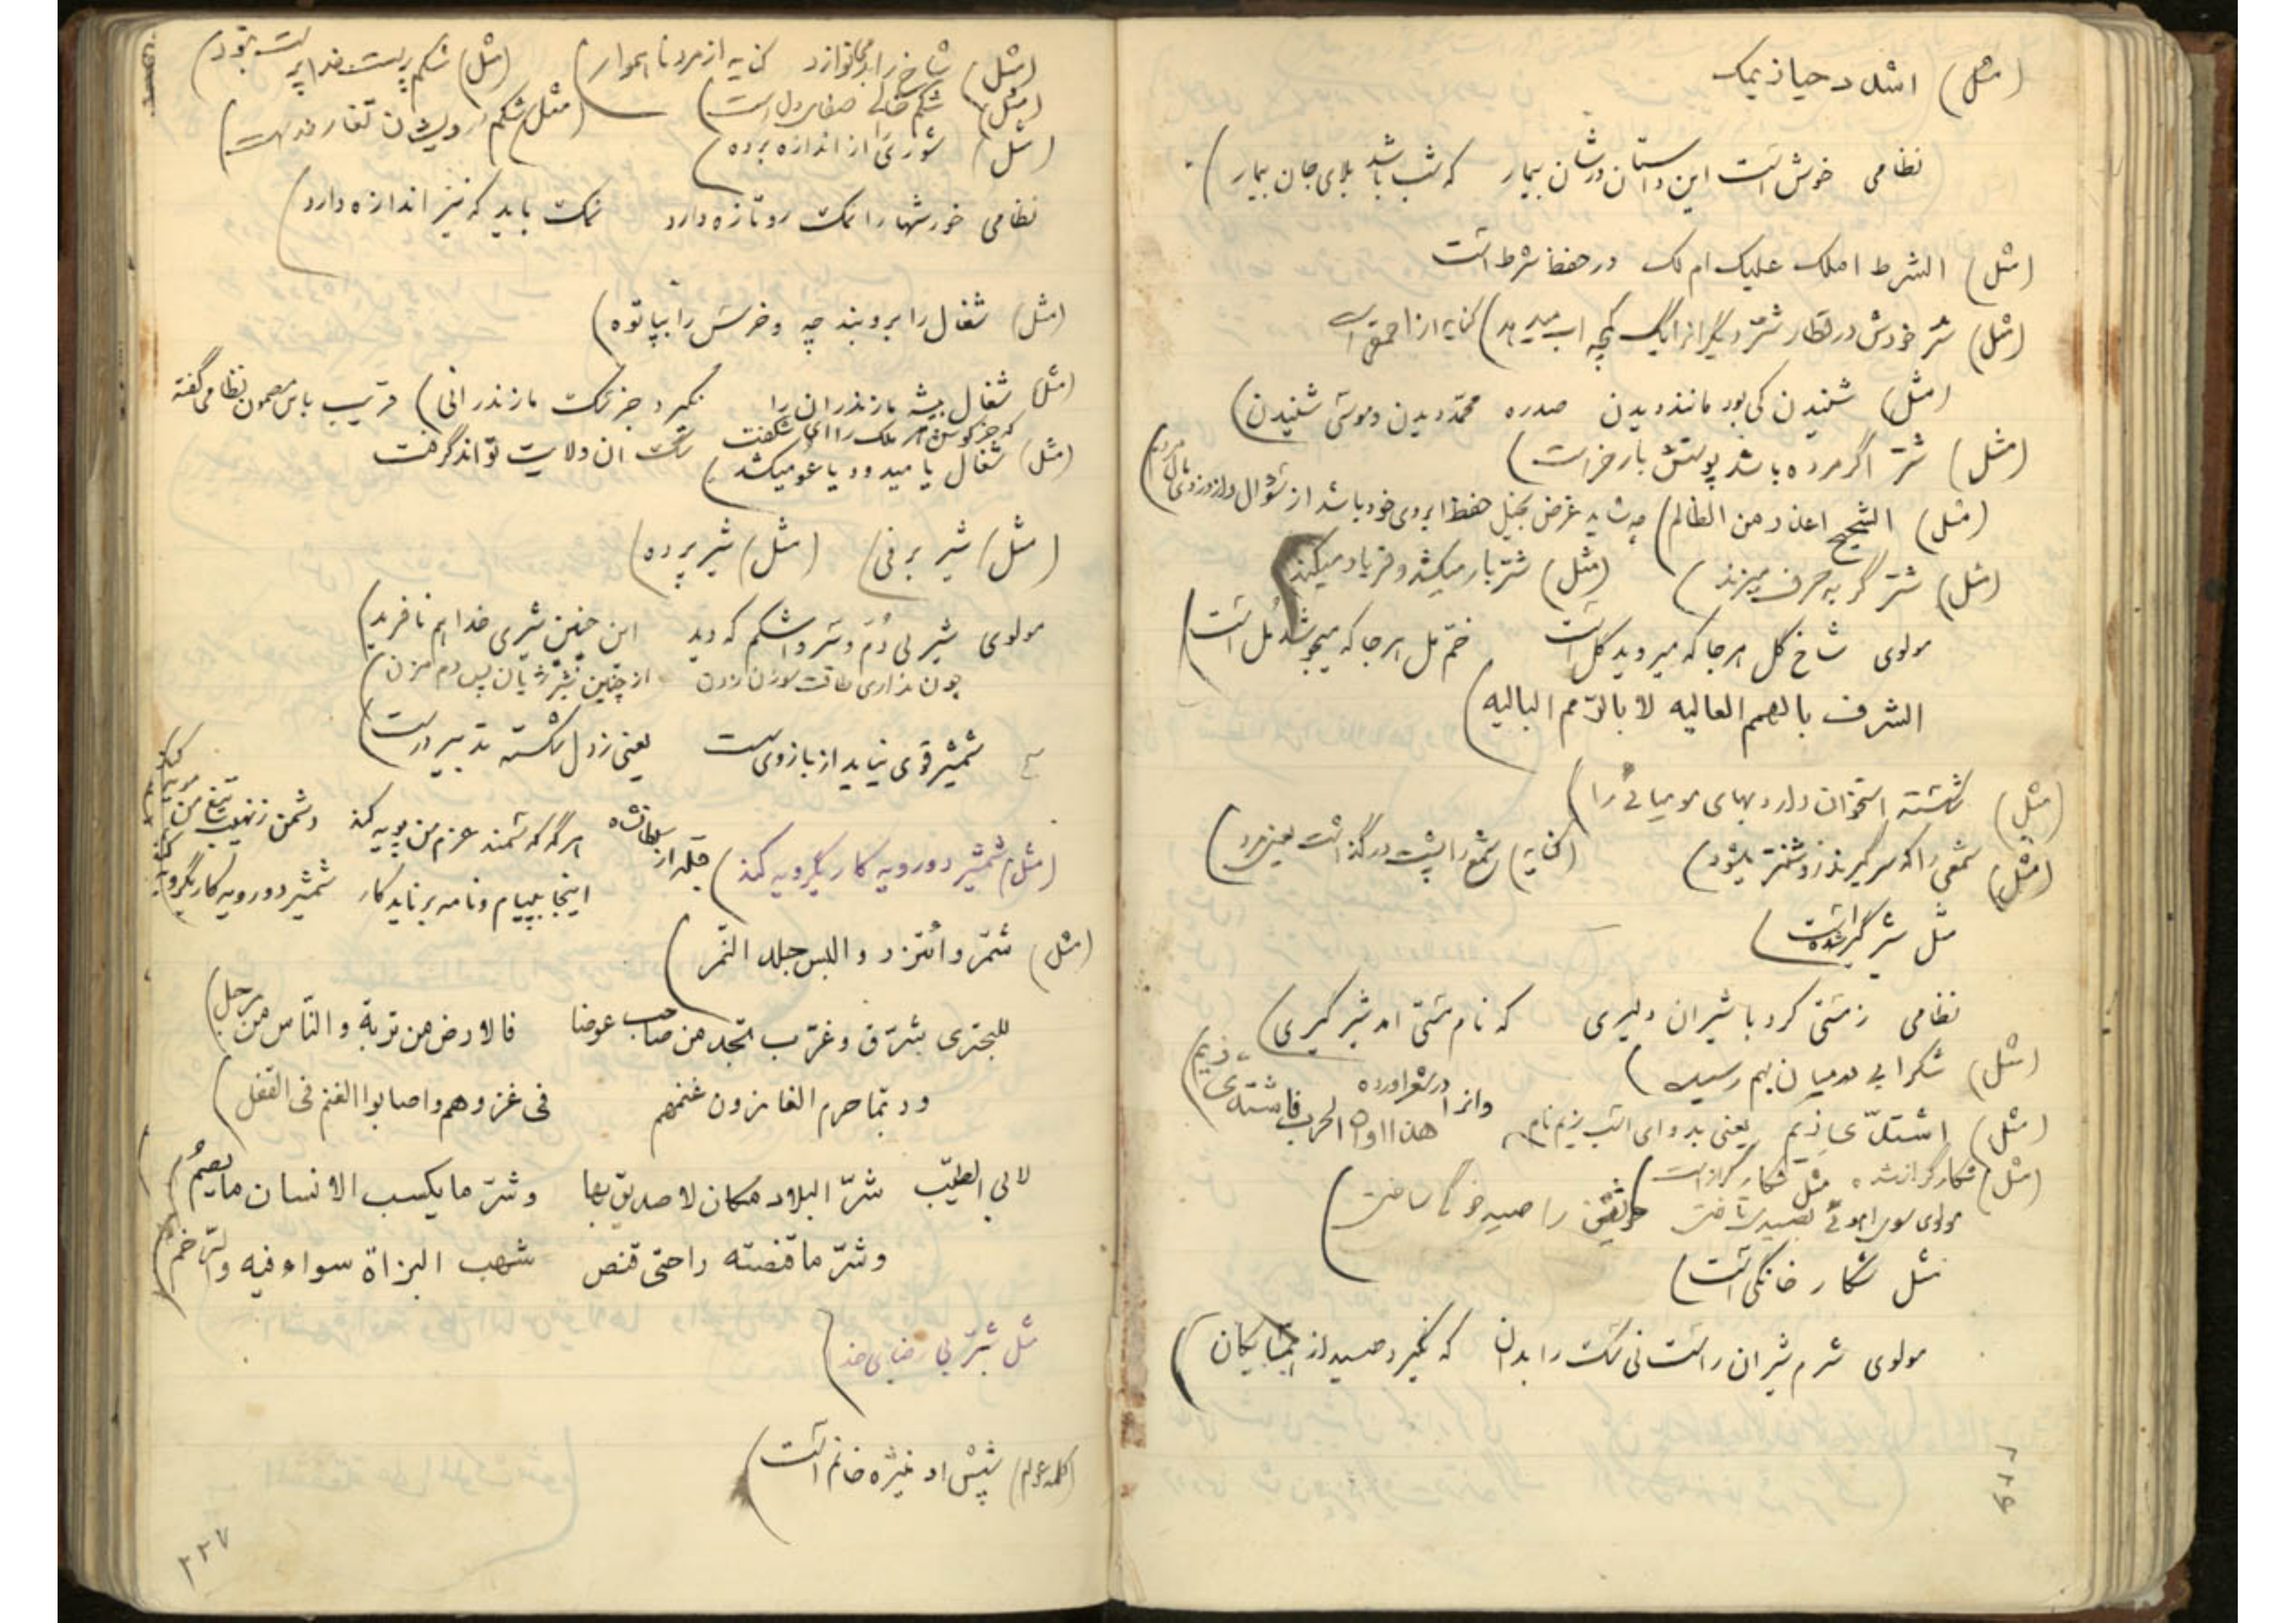 (مثل) اشدد حیازیمک
نظامی خوش است این داستان در شان بیمار که شب باشد بلای جان بیمار)
(مثل) الشرط املک علیک ام لک در حفظ شرط است
(مثل) شتر خودش در قطار شتر دیگر
(مثل) شنیدن کی بود مانند دیدن صدره محمد دیدن و موسی شنیدن)
(مثل) شتر اگر مرده باشد پوستش بار خر است)
(مثل) الشحیح اعذر من الظالم) چه شاید غرض بخیل حفظ ابروی خود باشد از سؤال
(مثل) شتر گربه حرف میزند) (مثل) شتر بار میکشد و فریاد میکند)
مولوی شاخ گل هر جا که میروید گل است خم مل هر جا که میجوشد مل است)
الشرف بالهمم العالیه لا بالرّمم البالیه)
(مثل) شکسته استخوان داند بهای مومیائی را)
(مثل) شمعی را که سر گیرند روشنتر میشود) (کنایه) شمع را پشت در گذاشت یعنی مرد)
مثل شیر گیر شده است)
نظامی ز مستی کرد با شیران دلیری که نام مستی امد شیر گیری)
(مثل) شکرابی در میان بهم رسید)
(مثل) اشتدّی زیم یعنی بدو ای اسب زیم نام
وانرا در شعر اورده هذا اوان الحرب فاشتدی زیم)
(مثل) شکار گراز شده مثل شکار گراز است)
مولوی سوی اهوئی بصیدی تاختی خویش را صید خوگی ساختی)
مثل شکار خانگی است)
مولوی شرم شیران راست نی سگ را بدان که نگیرد صید از همسایگان)
۲۲۶
(مثل) شاخ را بد میخوانزد کنایه از مرد ناهموار) (مثل) شکم پرست خدا پرست نبود)
(مثل) شکم خالی صفای دل است) (مثل) شکم درویشان تغار خداست)
(مثل) شوری از اندازه برده)
نظامی خورشها را نمک رو تازه دارد نمک باید که نیز اندازه دارد)
(مثل) شغال را برو بند چه و خرس را بپا توه)
(مثل) شغال بیشه مازندران را نگیرد جز سگ مازندرانی) قریب باین مضمون نظامی گفته
که جز گوش هر ملک را ای شگفت سگ ان ولایت تواند گرفت
(مثل) شغال یا میدود یا عو میکشد)
(مثل) شیر برفی) (مثل) شیر پرده)
مولوی شیر بی دُم و سَر و اشکم که دید این چنین شیری خدا هم نافرید)
چون نداری طاقت سوزن زدن از چنین شیر ژیان پس دم مزن)
شمشیر قوی نیاید از بازوی سست یعنی ز دل شکسته تدبیر درست)
(مثل) شمشیر دورویه کار یکرویه کند) هر گه که سمند عزم من پویه کند دشمن ز نهیب تیغ من مویه کند
اینجا بپیام و نامه بر ناید کار شمشیر دورویه کار یکرویه کند
(مثل) شمّر و ائتزر و البس جلد النّمر)
للبحتری شرّق و غرّب تجد من صاحب عوضا فالارض من تربة و النّاس من رجل)
و ربّما حرم الغازون غنمهم فی غزوهم و اصابوا الغنم فی القفل)
لابی الطیّب شرّ البلاد مکان لا صدیق بها و شرّ ما یکسب الانسان ما یصم
و شرّ ما قنصته راحتی قنص شهب البزاة سواء فیه و الرّخم)
مثل شتر بی رضای خدا)
(کلمه عوام) شپش او منیژه خانم است)
۲۲۷